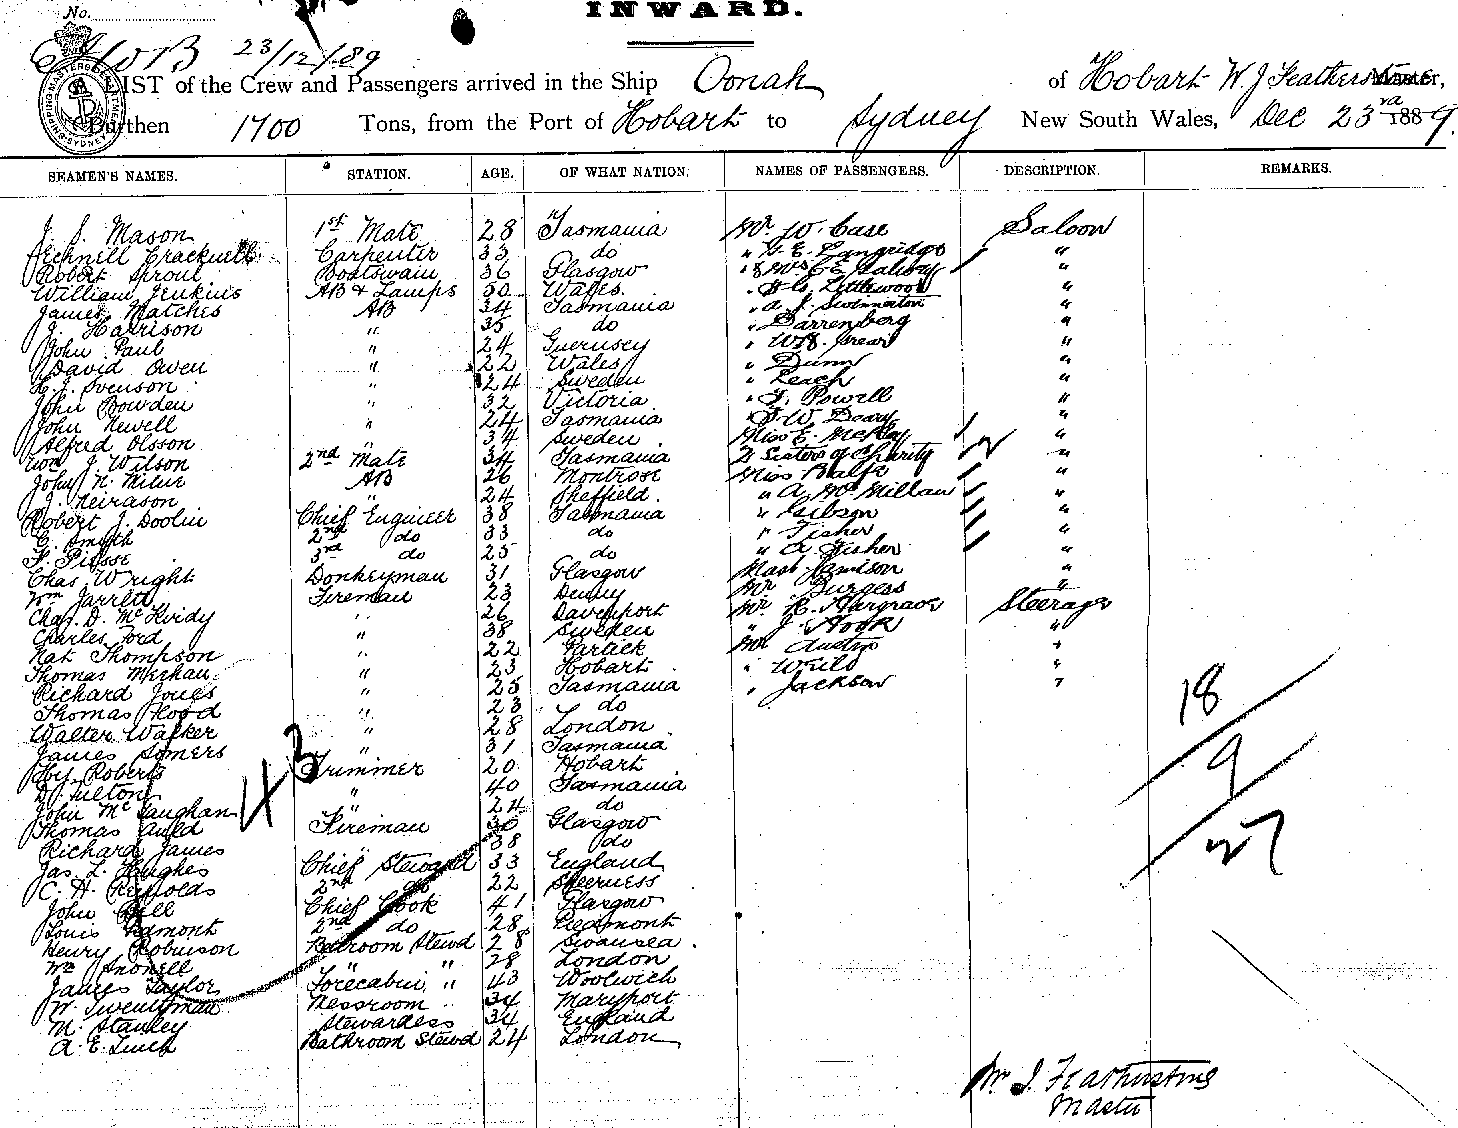 No.
INWARD.
23/12/89
SHIPPING MASTERS DEPARTMENT SYDNEY
LIST of the Crew and Passengers arrived in the Ship Oonah of Hobart W. J. Featherstone Master,
Burthen 1700 Tons, from the Port of Hobart to Sydney New South Wales, Dec 23rd 1889.
SEAMEN'S NAMES. STATION. AGE. OF WHAT NATION. NAMES OF PASSENGERS. DESCRIPTION. REMARKS.
J. S. Mason 1st Mate 28 Tasmania Mr. W. Case Saloon
Carpenter 33 do " "
Robert Sproul Boatswain 36 Glasgow "
William Jenkins AB & Lamps 50 Wales " Littlewood "
James Matches AB 34 Tasmania " A. J. Swinnerton "
J. Harrison " 35 do " Darrenberg "
John Paul " 24 Guernsey "
David Owen " 22 Wales " Dunn "
Svenson " 24 Sweden " Leach "
John Bowden " 32 Victoria " Powell "
John Newell " 24 Tasmania " W. Deary "
Alfred Olsson " 34 Sweden Miss E. McKay "
J. Wilson 2nd Mate 34 Tasmania 2 Sisters of Charity "
John N. Milne AB 26 Montrose Miss Balfe "
J. Neirason " 24 Sheffield " A. McMillan "
Robert J. Doolin Chief Engineer 38 Tasmania " Gibson "
C. Smyth 2nd do 33 do " Fisher "
F. Piesse 3rd do 25 do " A. Fisher "
Chas Wright Donkeyman 31 Glasgow Mast "
Wm Jarrett Fireman 23 Mr. Burgess "
Chas. D. 26 Davenport Mr. R. Hargrave Steerage
Charles Ford " 38 Sweden " J. Hook "
Nat Thompson 22 Partick Mr Austin
Thomas " 23 Hobart " Weild "
Richard Jones " 25 Tasmania " Jackson "
Thomas Hood " 23 do
Walter Walker " 28 London
James Somers " 31 Tasmania
Roberts Trimmer 20 Hobart
D. Fulton " 40 Tasmania
John McGaughan " 24 do
Thomas Auld Fireman 30 Glasgow
Richard James " 38 do
Jas. L. Hughes Chief Steward 33 England
C. H. Reynolds 2nd do 22 Sheerness
John Bell Chief Cook 41 Glasgow
Louis 2nd do 28 Piedmont
Henry Robinson Bedroom Stewd 28 Swansea
Wm " " 28 London
James Taylor Forecabin " 43 Woolwich
W. Twentyman Messroom " 34 Maryport
M. Stanley Stewardess 34 England
A. E. Bathroom Stewd 24 London
43
18
9
27
Wm J. Featherstone
Master